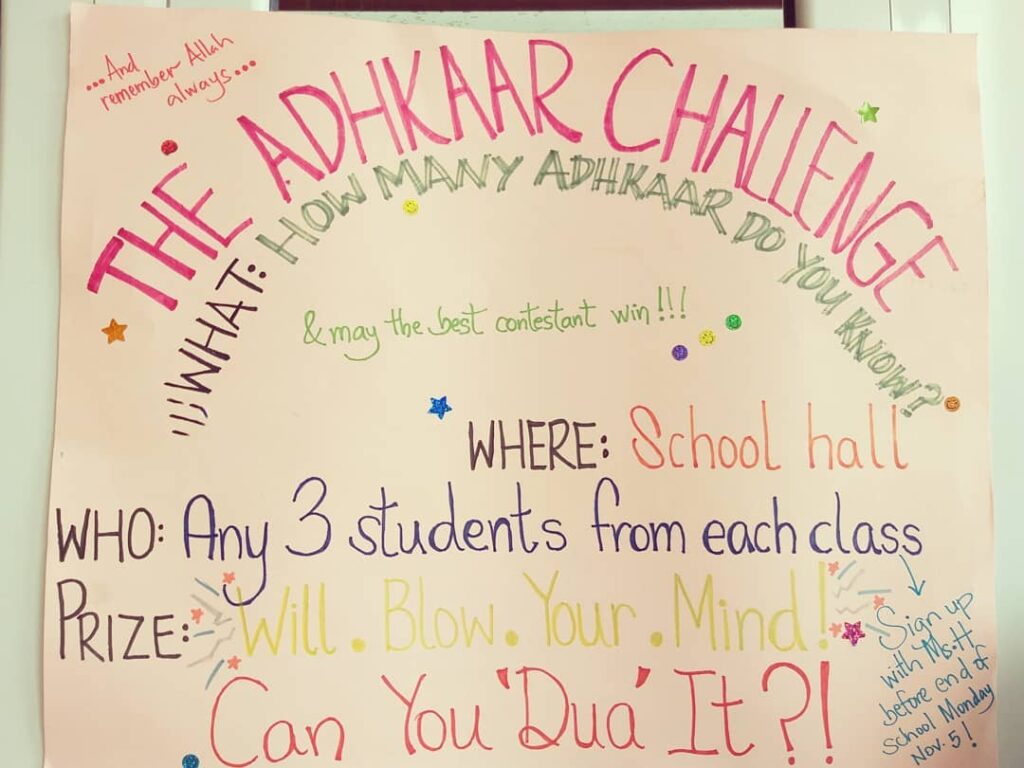 ...And
remember Allah
always...
THE ADHKAAR CHALLENGE
WHAT: HOW MANY ADHKAAR DO YOU KNOW?
& may the best contestant win!!!
WHERE: School hall
WHO: Any 3 students from each class
PRIZE: Will. Blow. Your. Mind!
Can You 'Dua' It?!
Sign up
with Ms.H
before end of
school Monday
Nov. 5!